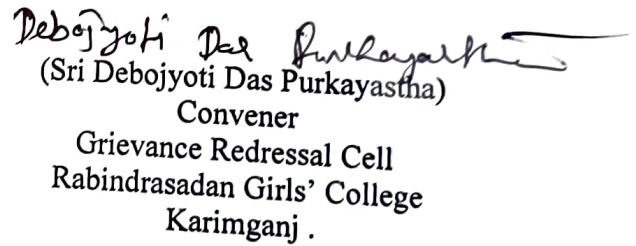 Debojyoti Das Purkayastha
(Sri Debojyoti Das Purkayastha)
Convener
Grievance Redressal Cell
Rabindrasadan Girls' College
Karimganj .